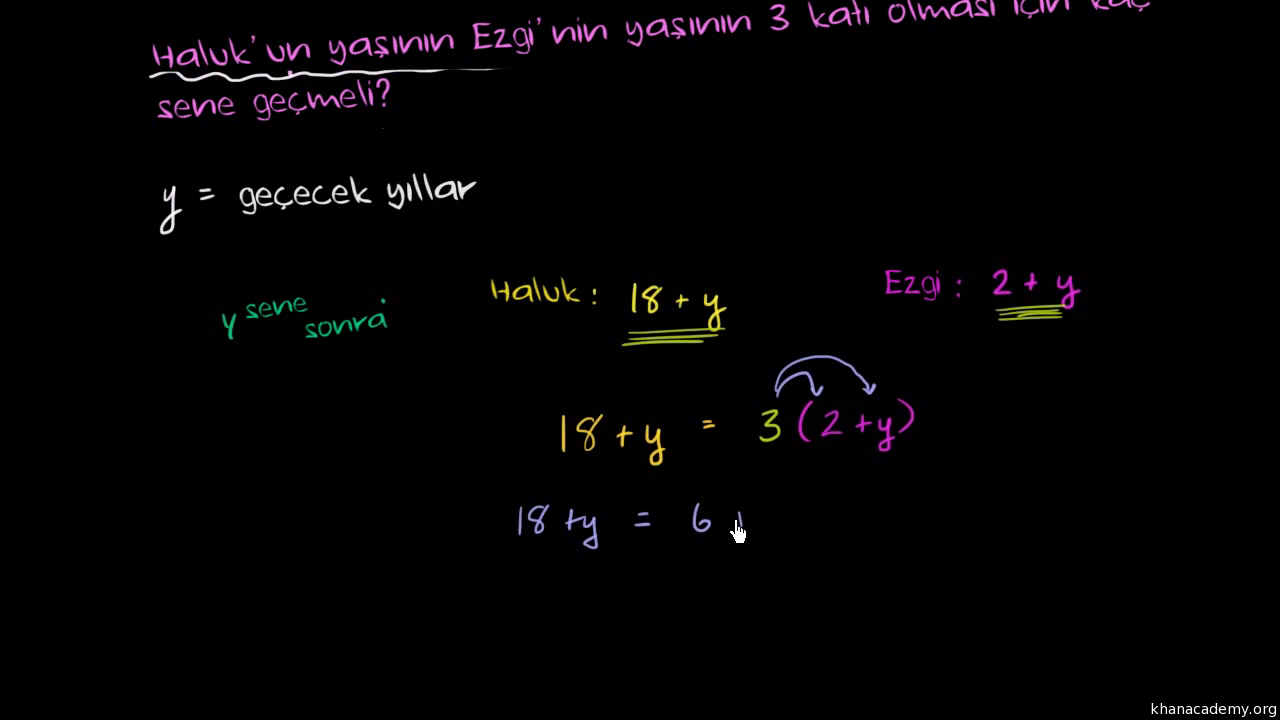 Haluk'un yaşının Ezgi'nin yaşının 3 katı olması için kaç
sene geçmeli?
y = geçecek yıllar
y sene sonra
Haluk: 18 + y
Ezgi: 2 + y
18 + y = 3 (2 + y)
18 + y = 6
khanacademy.org